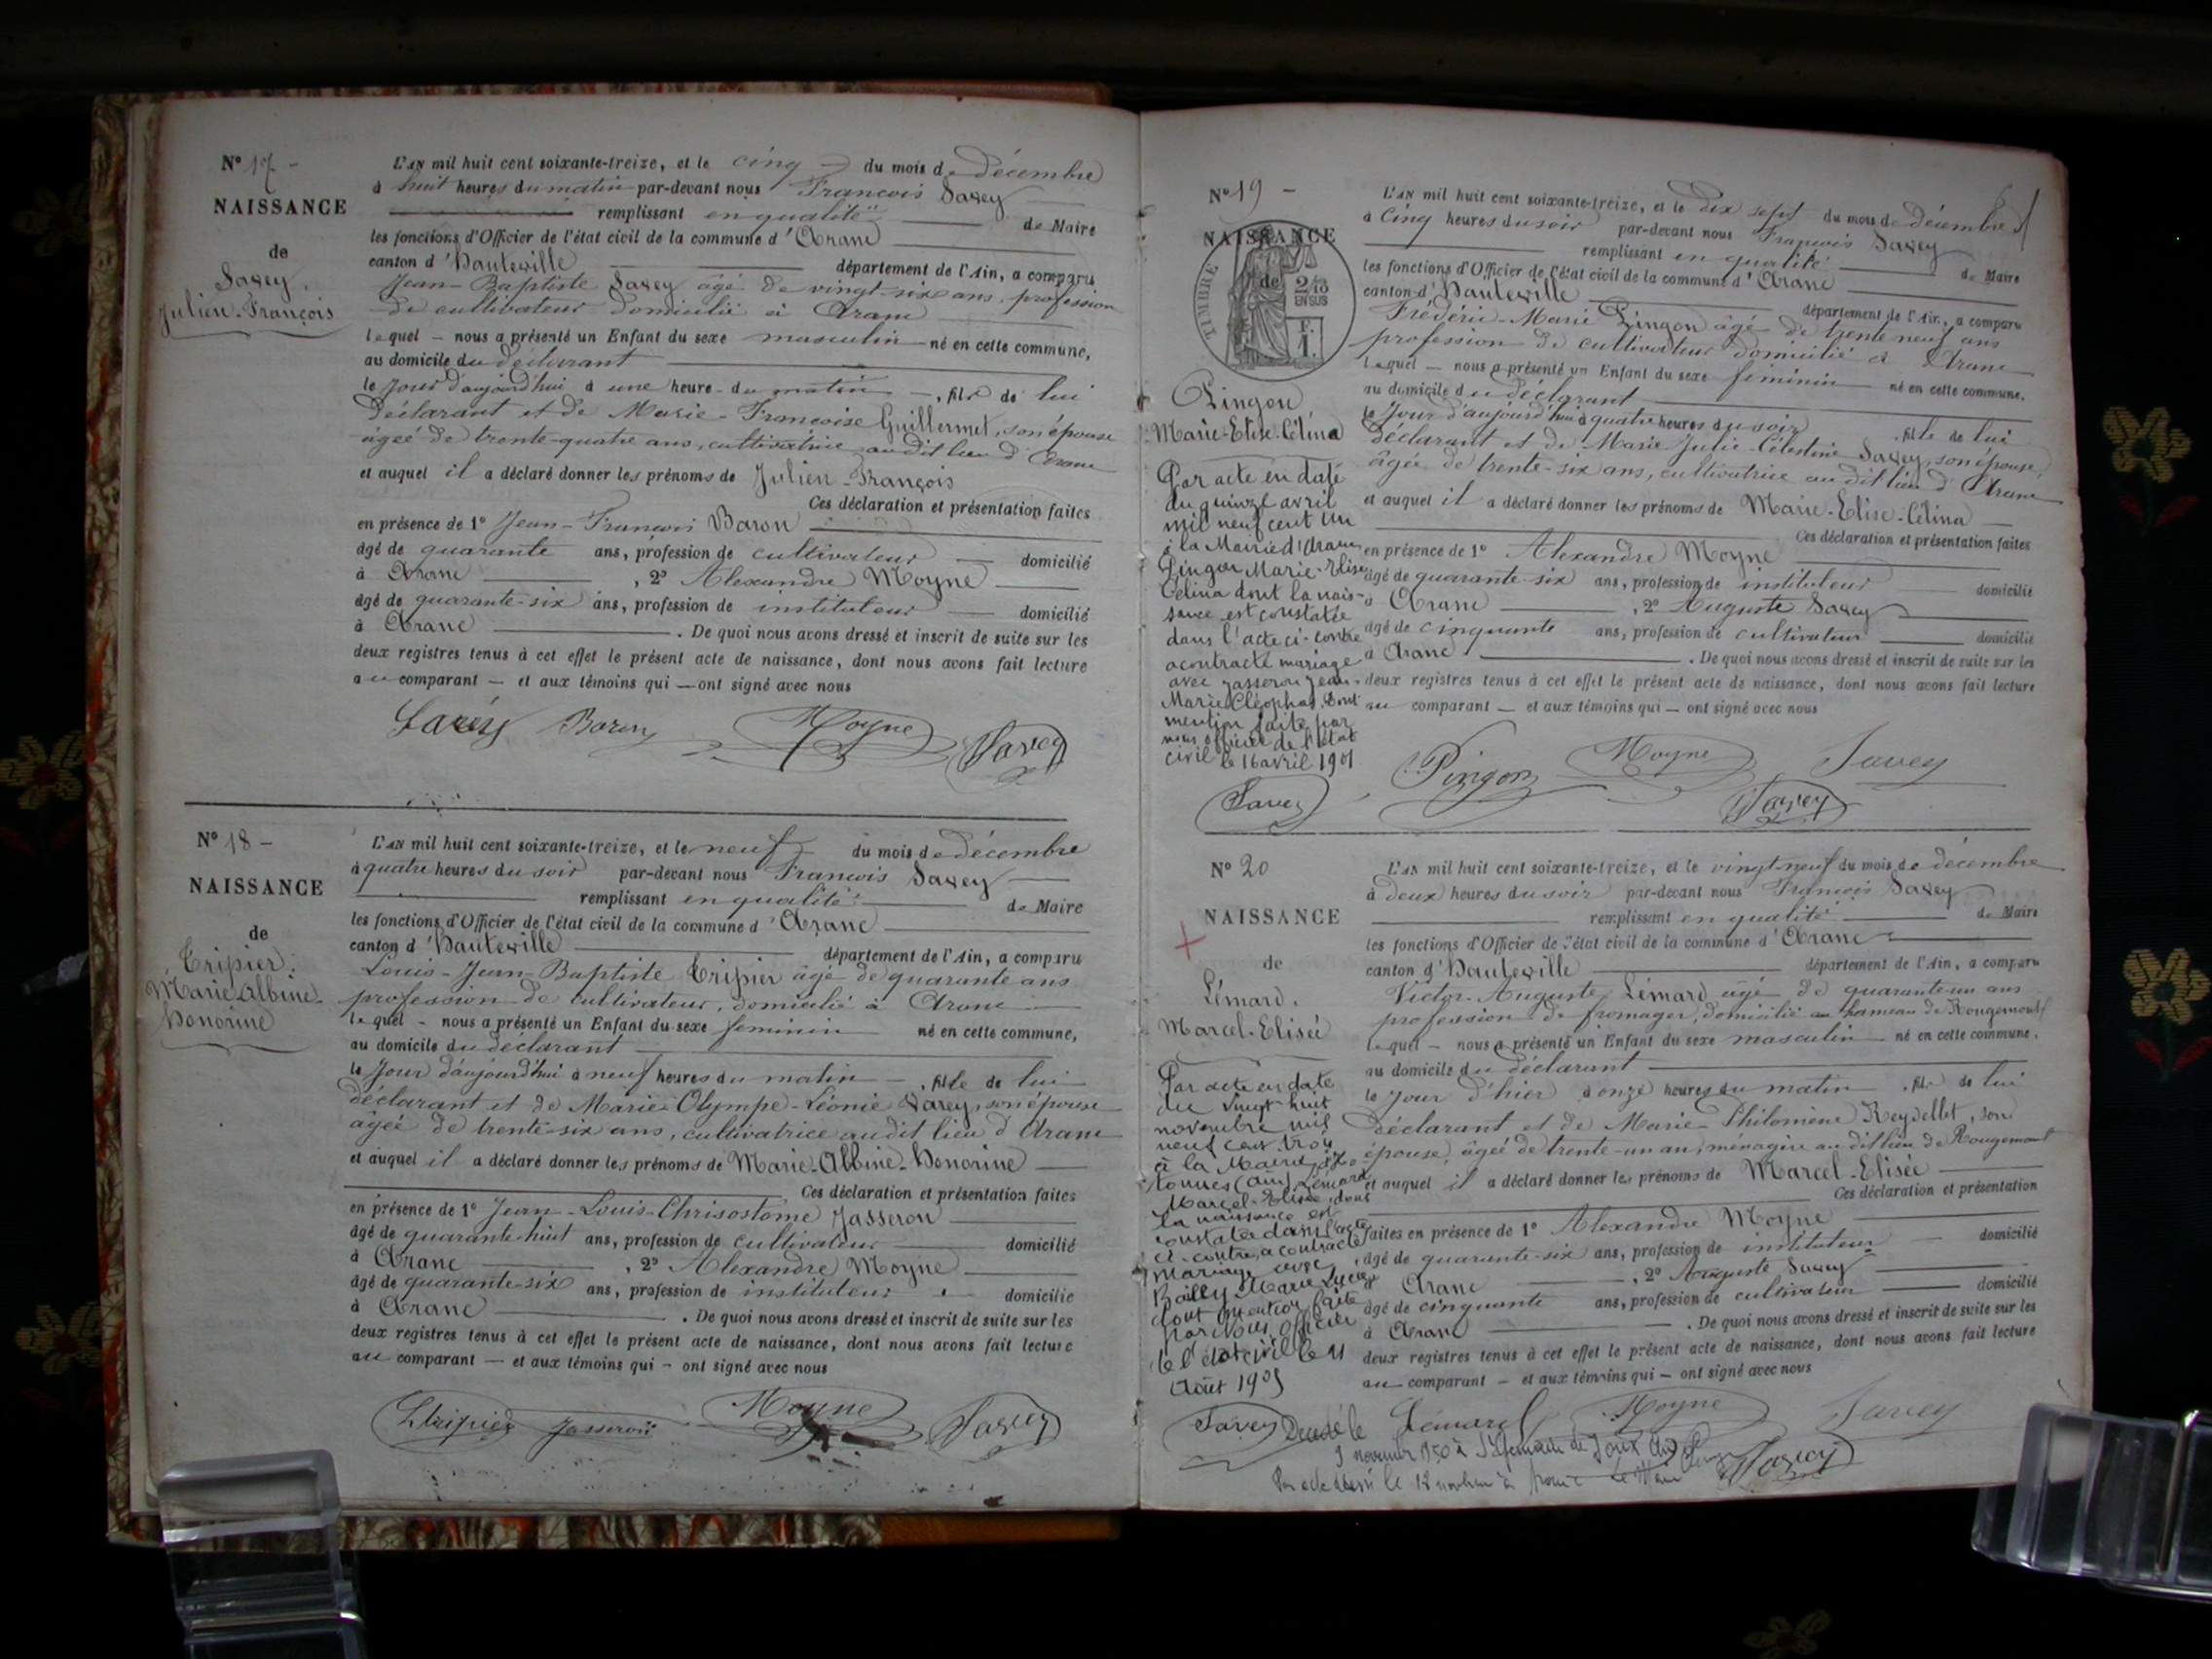 N° 17 -
NAISSANCE
de
Savey
Julien-François
L'AN mil huit cent soixante-treize, et le cinq du mois de décembre
à huit heures du matin par-devant nous François Savey
remplissant en qualité de Maire
les fonctions d'Officier de l'état civil de la commune d'Aranc
canton d'Hauteville département de l'Ain, a comparu
Jean-Baptiste Savey âgé de vingt-six ans, profession
de cultivateur domicilié à Aranc
lequel - nous a présenté un Enfant du sexe masculin né en cette commune,
au domicile du déclarant
le jour d'aujourd'hui à une heure du matin, fils de lui
déclarant et de Marie-Françoise Guillermet, son épouse
âgée de trente-quatre ans, cultivatrice audit lieu d'Aranc
et auquel il a déclaré donner les prénoms de Julien-François
Ces déclaration et présentation faites
en présence de 1° Jean-François Baron
âgé de quarante ans, profession de cultivateur domicilié
à Aranc, 2° Alexandre Moyne
âgé de quarante-six ans, profession de instituteur domicilié
à Aranc. De quoi nous avons dressé et inscrit de suite sur les
deux registres tenus à cet effet le présent acte de naissance, dont nous avons fait lecture
au comparant - et aux témoins qui - ont signé avec nous
Savey Baron Moyne Savey
N° 18 -
NAISSANCE
de
Tripier.
Marie-Albine-
Honorine
L'AN mil huit cent soixante-treize, et le neuf du mois de décembre
à quatre heures du soir par-devant nous François Savey
remplissant en qualité de Maire
les fonctions d'Officier de l'état civil de la commune d'Aranc
canton d'Hauteville département de l'Ain, a comparu
Louis-Jean-Baptiste Tripier âgé de quarante ans
profession de cultivateur, domicilié à Aranc
lequel - nous a présenté un Enfant du sexe féminin né en cette commune,
au domicile du déclarant
le jour d'aujourd'hui à neuf heures du matin -, fille de lui
déclarant et de Marie-Olympe-Léonie Savey, son épouse
âgée de trente-six ans, cultivatrice audit lieu d'Aranc
et auquel il a déclaré donner les prénoms de Marie-Albine-Honorine
Ces déclaration et présentation faites
en présence de 1° Jean-Louis-Chrisostome Jasseron
âgé de quarante-huit ans, profession de cultivateur domicilié
à Aranc, 2° Alexandre Moyne
âgé de quarante-six ans, profession de instituteur domicilié
à Aranc. De quoi nous avons dressé et inscrit de suite sur les
deux registres tenus à cet effet le présent acte de naissance, dont nous avons fait lecture
au comparant - et aux témoins qui - ont signé avec nous
Tripier Jasseron Moyne Savey
N° 19 -
NAISSANCE
de
TIMBRE
2/10
EN SUS
1 F.
Pingon
Marie-Elise-Célina
Par acte en date
du quinze avril
mil neuf cent un
à la Mairie d'Aranc
Pingon Marie-Elise
Célina dont la nais-
sance est constatée
dans l'acte ci-contre
a contracté mariage
avec Jasseron Jean-
Marie Cléophas. Dont
mention faite par
nous officier de l'état
civil le 16 avril 1901
Savey
L'AN mil huit cent soixante-treize, et le dix sept du mois de décembre
à cinq heures du soir par-devant nous François Savey
remplissant en qualité de Maire
les fonctions d'Officier de l'état civil de la commune d'Aranc
canton d'Hauteville département de l'Ain, a comparu
Frédéric-Marie Pingon âgé de trente neuf ans
profession de cultivateur domicilié à Aranc
lequel - nous a présenté un Enfant du sexe féminin né en cette commune.
au domicile du déclarant
le jour d'aujourd'hui à quatre heures du soir, fille de lui
déclarant et de Marie Julie-Célestine Savey, son épouse
âgée de trente-six ans, cultivatrice audit lieu d'Aranc
et auquel il a déclaré donner les prénoms de Marie-Elise-Célina
Ces déclaration et présentation faites
en présence de 1° Alexandre Moyne
âgé de quarante-six ans, profession de instituteur domicilié
à Aranc, 2° Auguste Savey
âgé de cinquante ans, profession de cultivateur domicilié
à Aranc. De quoi nous avons dressé et inscrit de suite sur les
deux registres tenus à cet effet le présent acte de naissance, dont nous avons fait lecture
au comparant - et aux témoins qui - ont signé avec nous
Pingon Moyne Savey
Savey
N° 20
NAISSANCE
de
Lémard.
Marcel-Elisée
Par acte en date
du vingt huit
novembre mil
neuf cent trois
à la Mairie d'Yzo-
tonnes (Ain) Lémard
Marcel-Elisée, dont
la naissance est
constatée dans l'acte
ci-contre, a contracté
mariage avec
Bailly Marie
dont mention faite
par Nous, officier
de l'état civil le 11
Août 1905
Savey
L'AN mil huit cent soixante-treize, et le vingt-neuf du mois de décembre
à deux heures du soir par-devant nous François Savey
remplissant en qualité de Maire
les fonctions d'Officier de l'état civil de la commune d'Aranc
canton d'Hauteville département de l'Ain, a comparu
Victor-Auguste Lémard âgé de quarante-un ans
profession de fromager, domicilié au hameau de Rougemont
lequel - nous a présenté un Enfant du sexe masculin né en cette commune.
au domicile du déclarant
le jour d'hier à onze heures du matin, fils de lui
déclarant et de Marie-Philomène Reydellet, son
épouse, âgée de trente-un an, ménagère audit lieu de Rougemont
et auquel il a déclaré donner les prénoms de Marcel-Elisée
Ces déclaration et présentation
faites en présence de 1° Alexandre Moyne domicilié
âgé de quarante-six ans, profession de instituteur
à Aranc, 2° Auguste Savey
âgé de cinquante ans, profession de cultivateur domicilié
à Aranc. De quoi nous avons dressé et inscrit de suite sur les
deux registres tenus à cet effet le présent acte de naissance, dont nous avons fait lecture
au comparant - et aux témoins qui - ont signé avec nous
Lémard Moyne Savey
Savey
Décédé le
9 novembre 1950 à St Germain de Joux Ain
le Maire